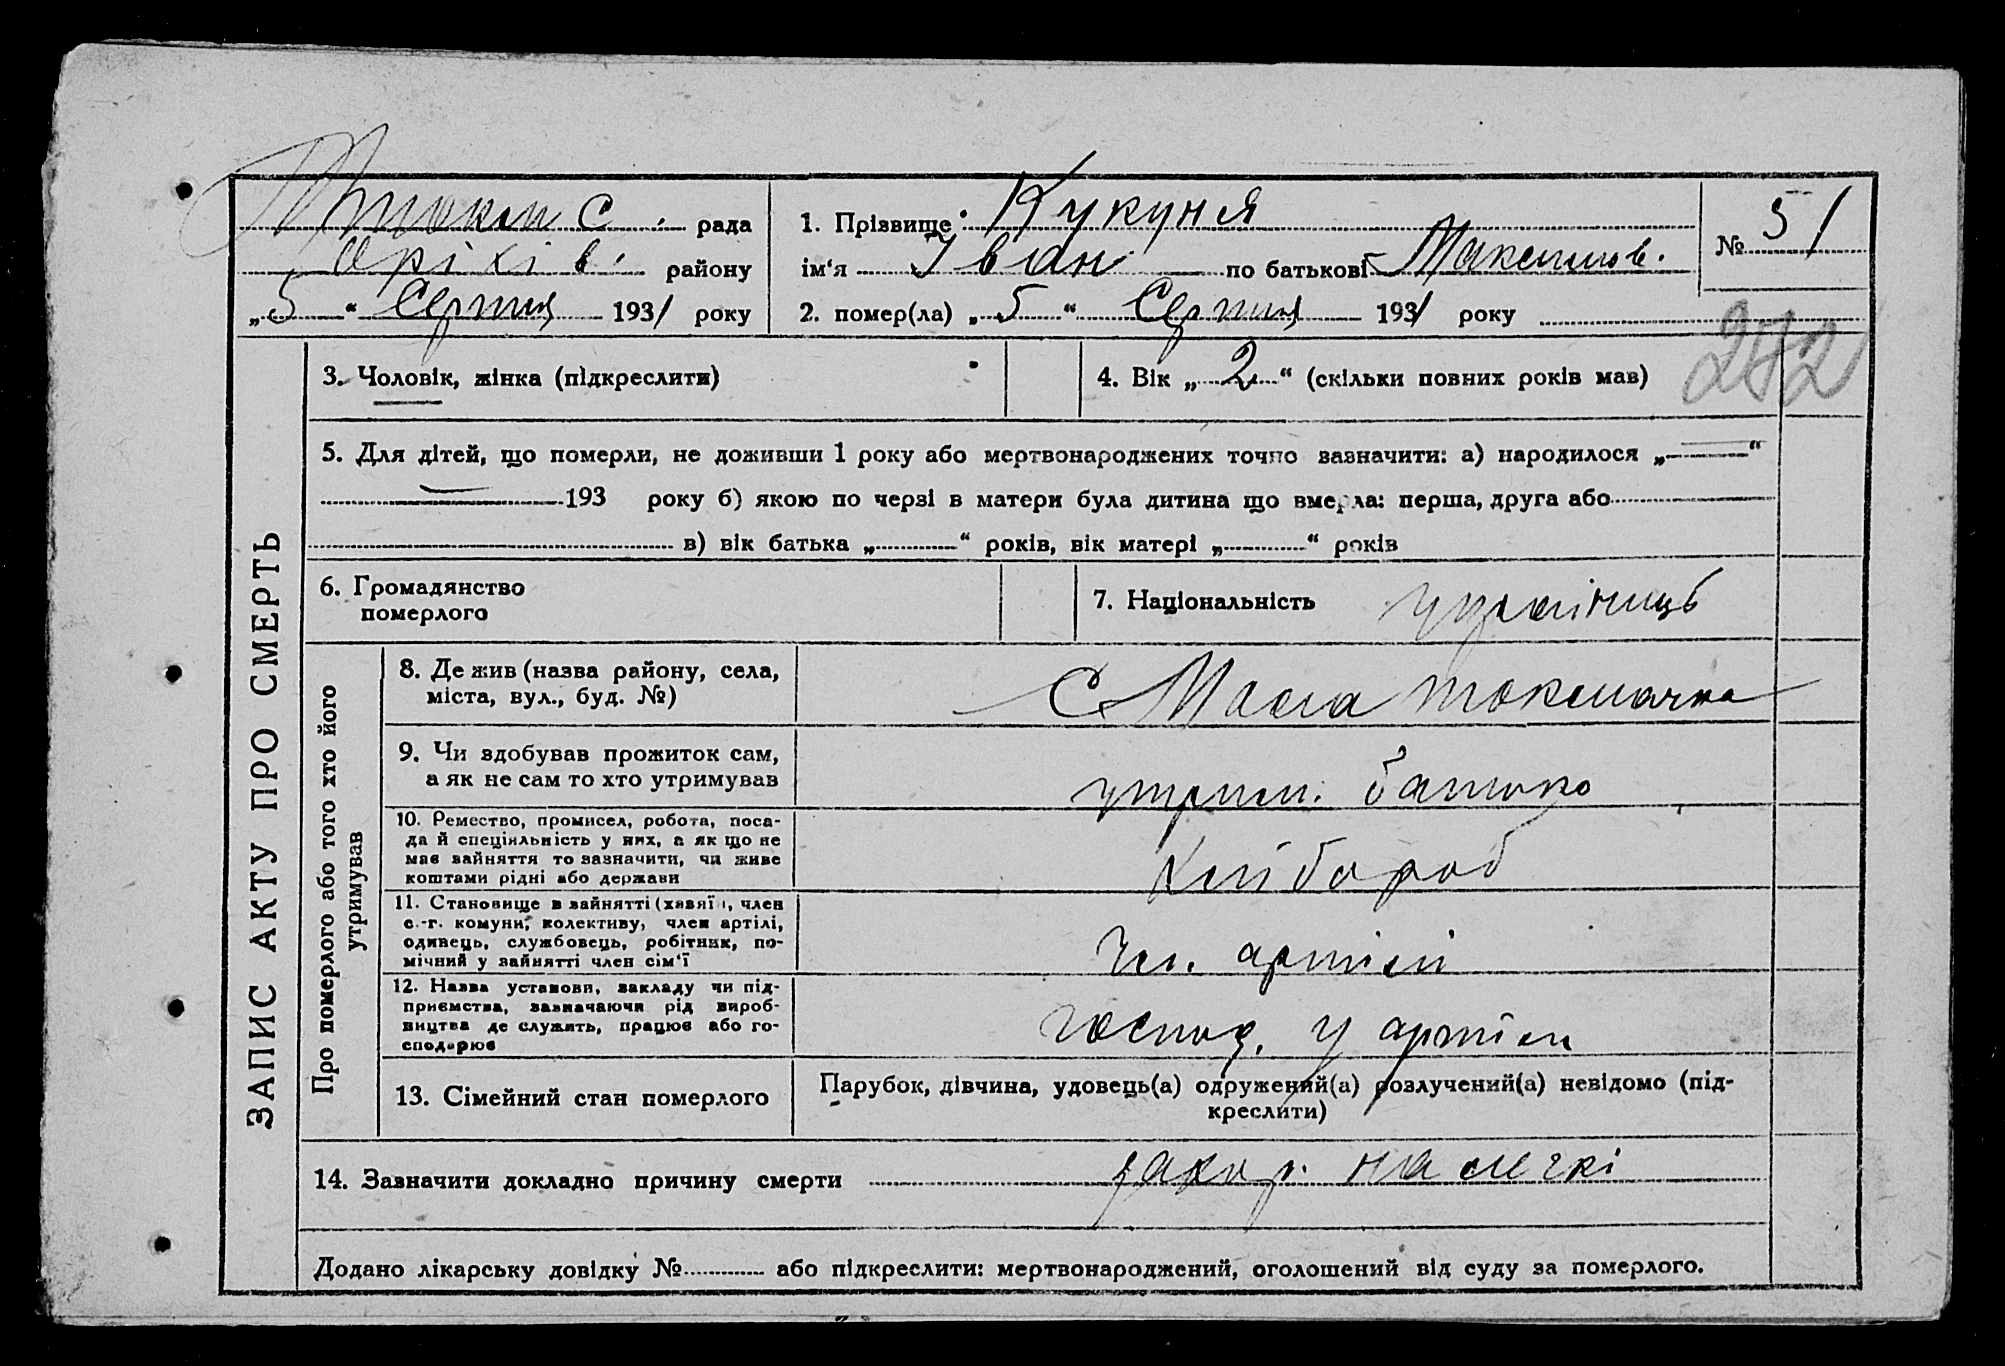 М токм С. рада
Оріхів. району
„5“ Серпня 1931 року
1. Прізвище Кукуня
ім‘я Іван по батькові Максимов.
2. помер(ла) „5“ Серпня 1931 року
№ 51
242
ЗАПИС АКТУ ПРО СМЕРТЬ
3. Чоловік, жінка (підкреслити)
4. Вік „2“ (скільки повних років мав)
5. Для дітей, що померли, не доживши 1 року або мертвонароджених точно зазначити: а) народилося „—“
— 193 року б) якою по черзі в матери була дитина що вмерла: перша, друга або
в) вік батька „ “ років, вік матері „ “ років
6. Громадянство
померлого
7. Національність українець
Про померлого або того хто його
утримував
8. Де жив (назва району, села,
міста, вул., буд. №)
С Мала токмачка
9. Чи здобував прожиток сам,
а як не сам то хто утримував
утрим. батько
10. Ремество, промисел, робота, поса-
да й спеціяльність у них, а як що не
має зайняття то зазначити, чи живе
коштами рідні або держави
Хлібороб
11. Становище в зайнятті (хазяїн, член
с.-г. комуни, колективу, член артілі,
одинець, службовець, робітник, по-
мічний у зайнятті член сім‘ї
Чл. артілі
12. Назва установи, закладу чи під-
приємства, зазначаючи рід вироб-
ництва де служить, працює або го-
сподарює
господ. у артіли
13. Сімейний стан померлого
Парубок, дівчина, удовець(а) одружений(а) розлучений(а) невідомо (під-
креслити)
14. Зазначити докладно причину смерти
захор. на легкі
Додано лікарську довідку № або підкреслити: мертвонароджений, оголошений від суду за померлого.